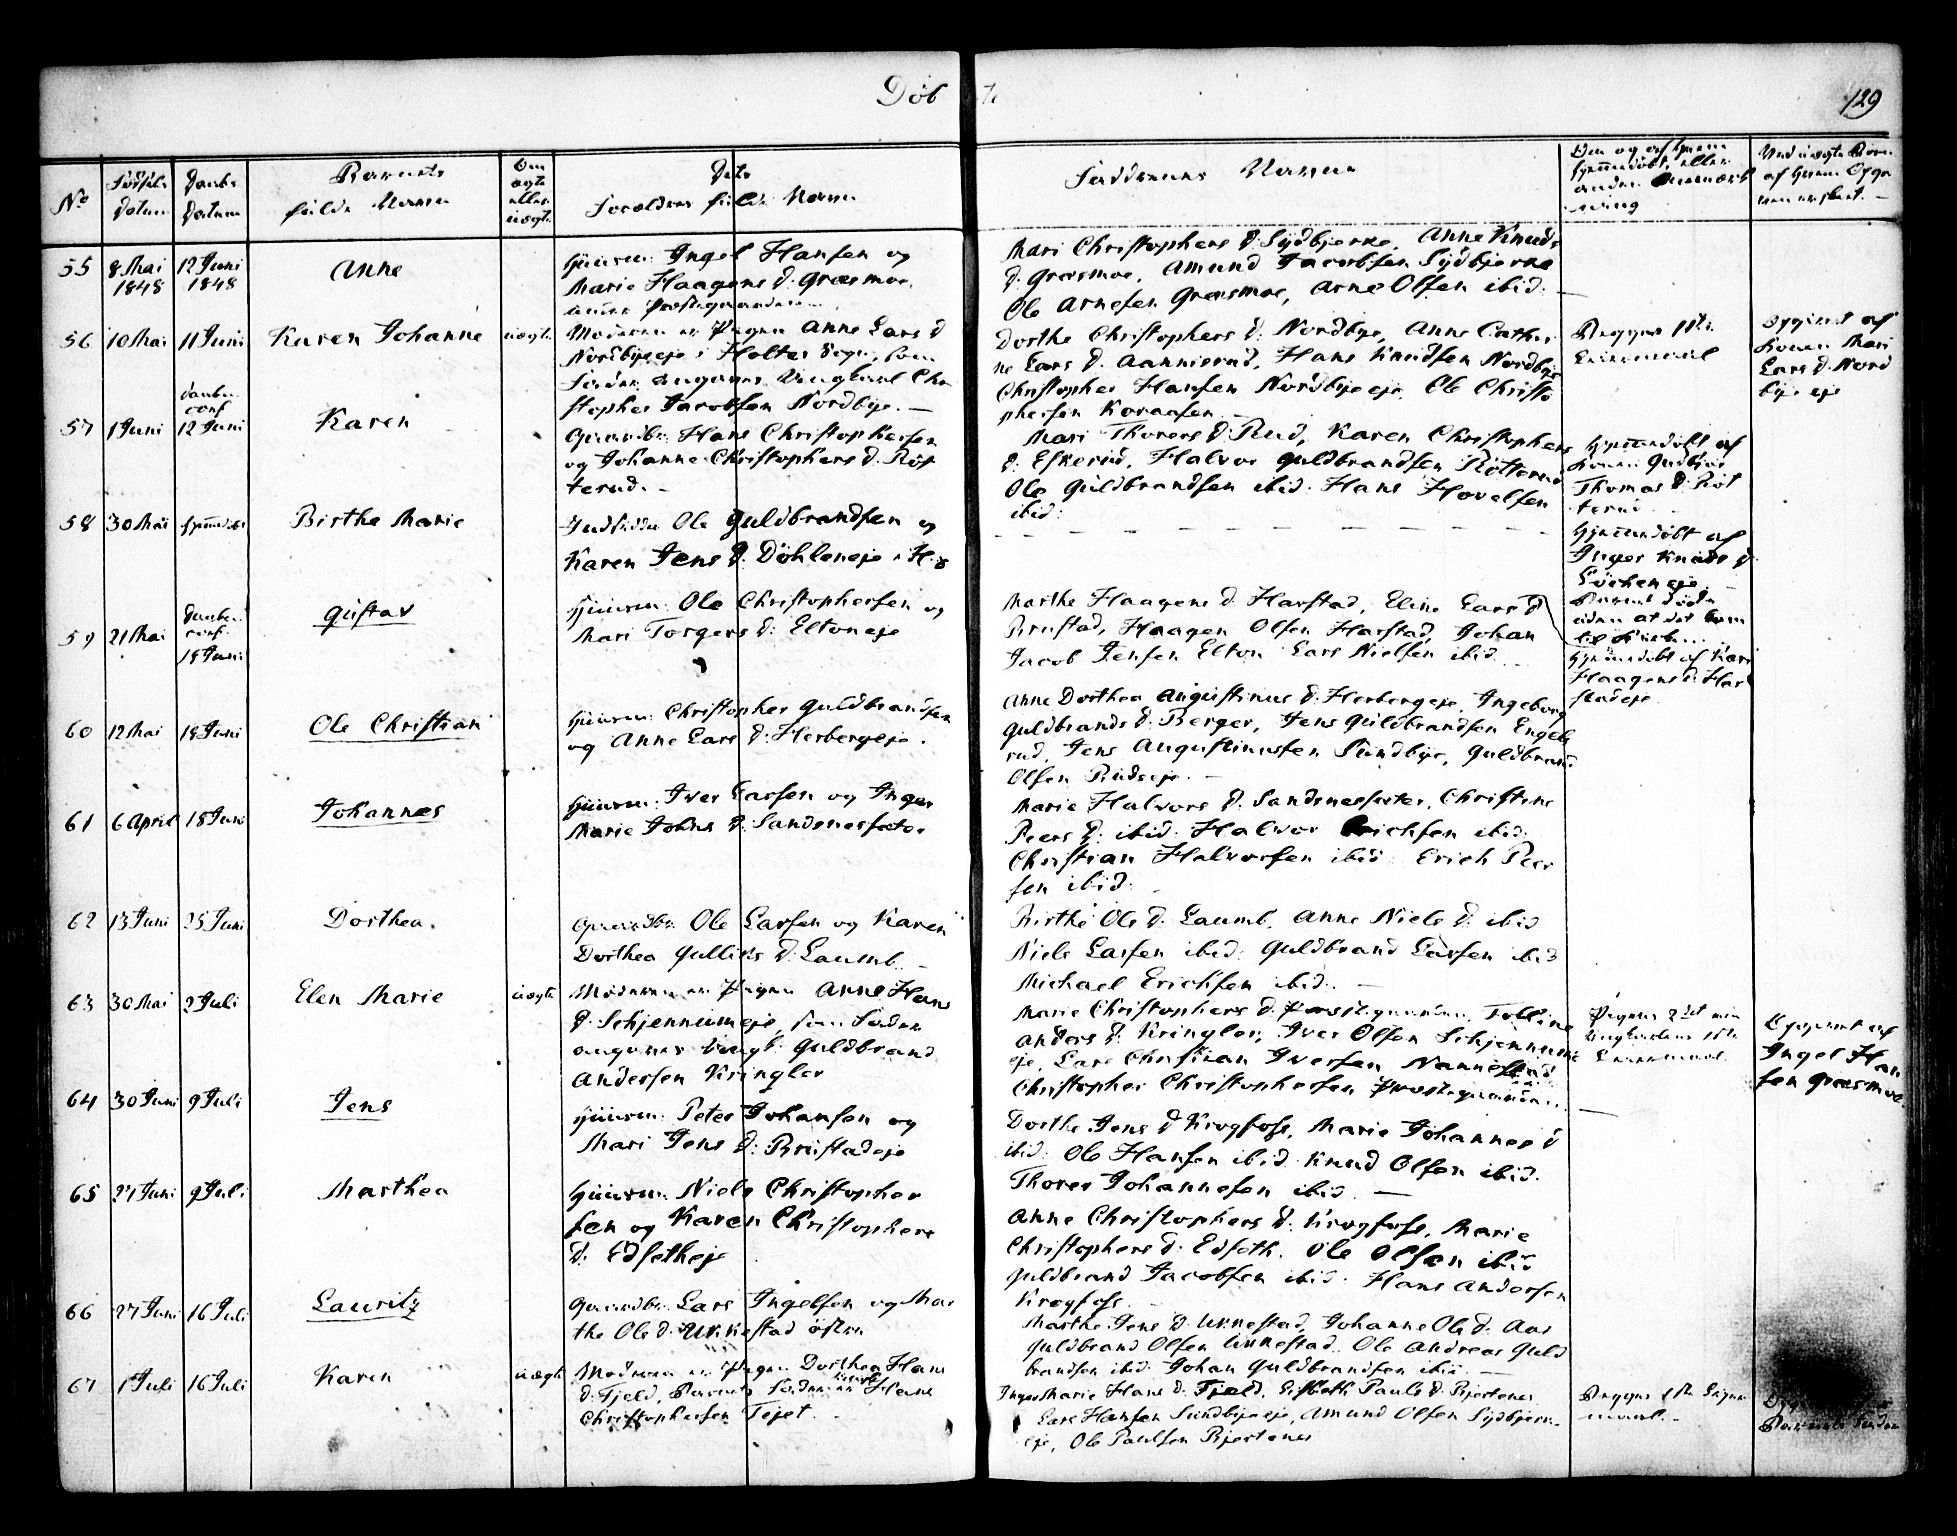 Döb
129
No
Fødsels Datum
Daabs Datum
Barnets fulde Navn
Om ægte eller uægte
Dets Forældres fulde Navn
Faddernes Navne
55 8 Mai 1848 12 Juni 1848 Anne
Huusm: Ingel Hansen og
Marie Haagens d: Græsmoe,
Mari Christophers d: Sydbjerke, Anne Knuds
d: Græsmoe, Amund Jacobsen Sydbjerke
Ole Arnesen Græsmoe, Arne Olsen ibid: —
56 10 Mai 11 Juni Karen Johanne uægte
Moderen er Pigen Anne Lars d
Nordbyeeje i Holter Sogn, som
Fader angives Ungkarl Chri
stopher Jacobsen Nordbye. —
Dorthe Christophers d: Nordbye, Anne Cathri
ne Lars d: Aannerud, Hans Knudsen Nordbye
Christopher Hansen Nordbyeeje, Ole Christo
phersen Koraasen
Begges 1ste
Leiermaal
Lars d. Nord
bye eje
57 1 Juni daaben conf 12 Juni Karen
Gaardbr: Hans Christophersen
og Johanne Christophers d: Röt
terud. —
Mari Thorers d: Rud, Karen Christophers
d: Eskerud, Halvor Guldbrandsen Rötterud
Ole Guldbrandsen ibid: Hans Hovelsen
ibid:
Hjemmedöbt af
Thomas d: Röt
terud
58 30 Mai hjemmedöbt Birthe Marie
Inderste Ole Guldbrandsen og
Karen Jens d: Döhleneje i H:s
Hjemmedöbt af
Inger Knuds d:
Barnet döde
uden at det kom
til Kirken
59 21 Mai Daaben conf. 18 Juni Gustav
Huusm: Ole Christophersen og
Mari Torgers d: Eltoneje
Marthe Haagens d: Harstad, Eline Lars d
Brustad, Haagen Olsen Harstad, Johan
Jacob Jensen Elton Lars Nielsen ibid
Hjemmedöbt af Kari
Haagens d: Har
stadeje
60 12 Mai 18 Juni Ole Christian
Huusm: Christopher Guldbrandsen
og Anne Lars d: Herbergeje.
Anne Dorthea Augustinus d: Herbergeje, Ingeborg
Guldbrands d: Berger, Jens Guldbrandsen Engeb
rud, Jens Augustinussen Sundbye, Guldbrand
Olsen Rudseje. —
61 6 April 18 Juni Johannes
Huusm: Iver Larsen og Inger
Marie Johns d: Sandnesfeter
Marie Halvors d: Sandnesfeter, Christine
Peers d: ibid: Halvor Erichsen ibid:
Christian Halvorsen ibid: Erich Peer
sen ibid:
62 13 Juni 25 Juni Dorthea.
Gaardbr: Ole Larsen og Karen
Dorthea Gulliks d: Laumb. —
Birthe Ole d: Laumb, Anne Niels d: ibid
Niels Larsen ibid: Guldbrand Larsen ibid
Michael Erichsen ibid: —
63 30 Mai 2 Juli Elen Marie uægte
Moderen er Pigen Anne Hans
d: Schjennumeje, som Fader
angives Ungk: Guldbrand
Andersen Kringler
Marie Christophers d: Præstegaarden, Talline
Anders d: Kringler, Iver Olsen Schjennum
eje, Lars Christian Iversen Nannestad
Christopher Christophersen Præstegaarden. —
Pigens 2det men
Ungkarlens 1ste
Leiermaal.
Opgivet af
Ingel Han
sen Græsmoe.
64 30 Juni 9 Juli Jens
Huusm: Peter Johansen og
Mari Jens d: Brustadeje
Dorthe Jens d Krogfoss, Marie Johannes d
ibid: Ole Hansen ibid. Knud Olsen ibid.
Thorer Johannesen ibid —
65 27 Juni 9 Juli Marthea
Huusm: Niels Christopher
sen og Karen Christophers
d: Edsetheje
Anne Christophers d: Krogfoss, Marie
Christophers d: Edseth. Ole Olsen ibid
Guldbrand Jacobsen ibid: Hans Andersen
Krogfoss
66 27 Juni 16 Juli Lauritz
Gaardbr: Lars Ingelsen og Mar
the Ole d: Ukkestad östre
Marthe Jens d: Ukkestad, Johanne Ole d: Aas
Guldbrand Olsen Ukkestad, Ole Andreas Guld
brandsen ibid: Johan Guldbrandsen ibid —
67 1 Juli 16 Juli Karen uægte
Moderen er Pigen Dorthea Hans
d: Tjeld, Barnets Fader er Hans
Christophersen Tejet
Inger Marie Hans d: Tjeld, Lisbeth Pauls d: Bjertenes
Lars Hansen Sundbyeeje, Amund Olsen Sydbjerke
eje, Ole Paulsen Bjertenes
Begges 1ste Leier
maal. —
Barnets Fader